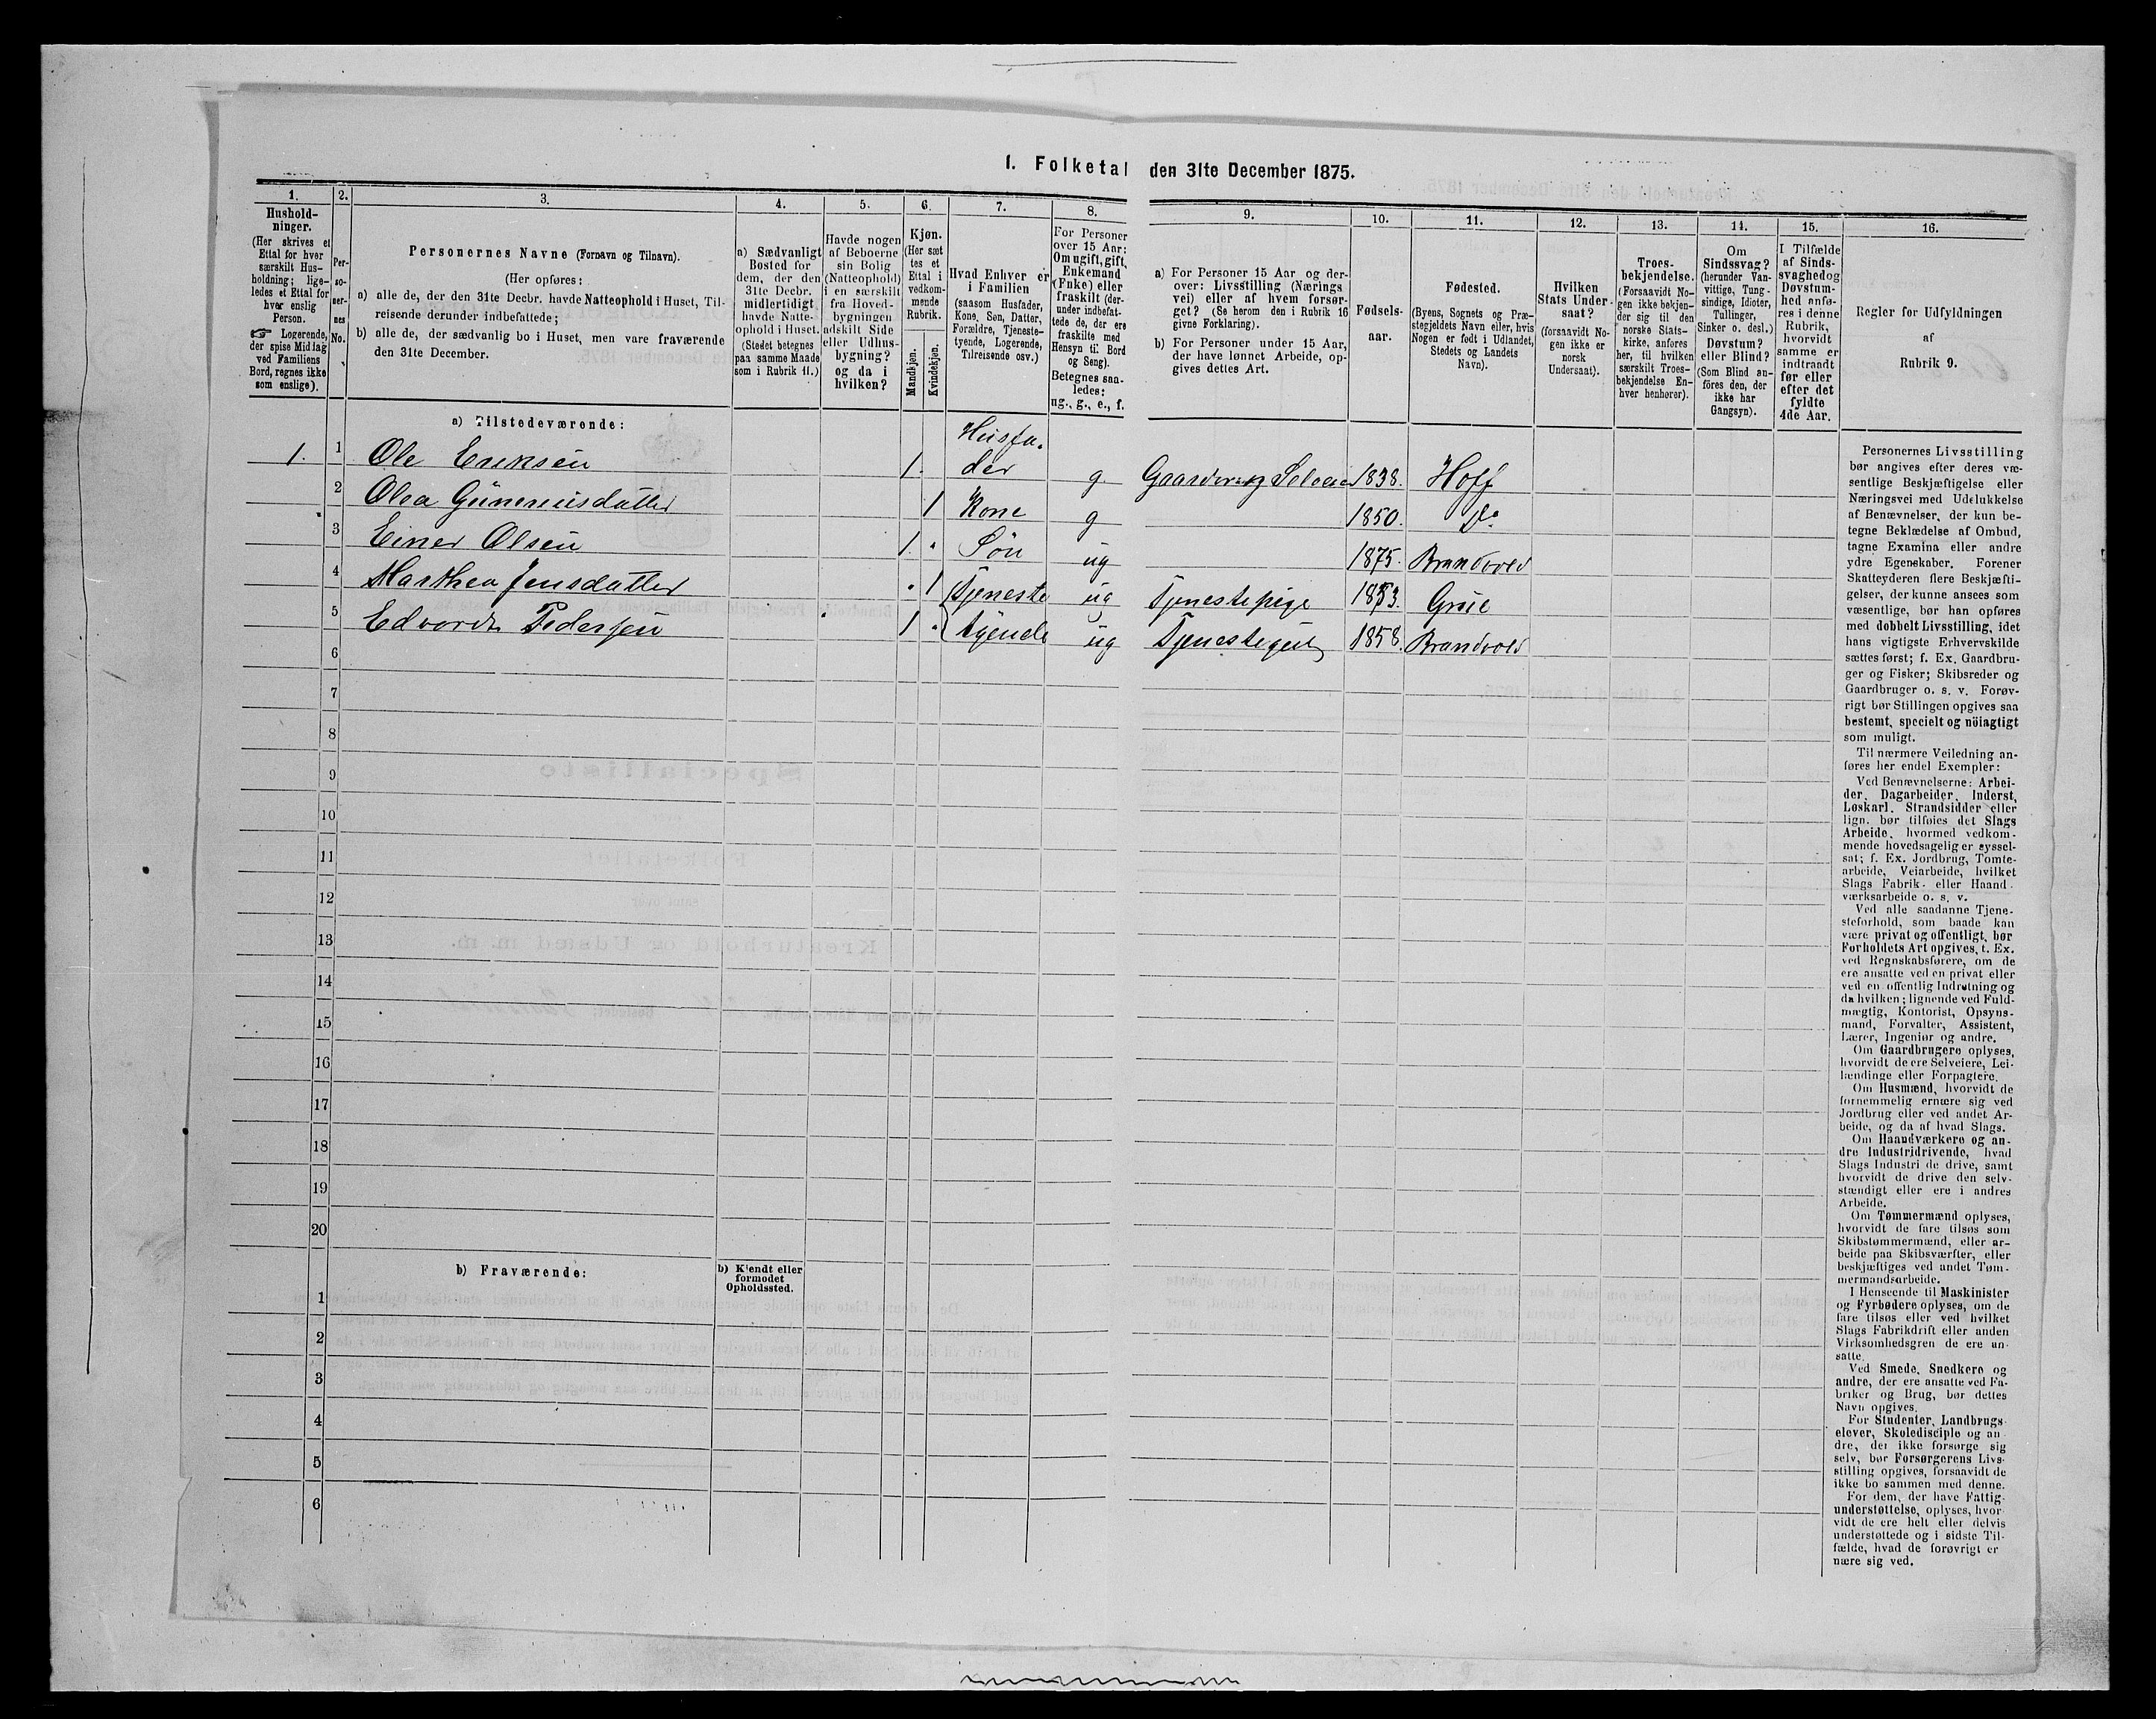 1. Folketal den 31te December 1875.
1. 2. 3. 4. 5. 6. 7. 8. 9. 10. 11. 12. 13. 14. 15. 16.
Hushold-
ninger.
(Her skrives et
Ettal for hver
særskilt Hus-
holdning; lige-
ledes et Ettal for
hver enslig
Person.
☞ Logerende,
der spise Middag
ved Familiens
Bord, regnes ikke
som enslige).
Per-
so-
ner-
nes
No.
Personernes Navne (Fornavn og Tilnavn).
(Her opføres:
a) alle de, der den 31te Decbr. havde Natteophold i Huset, Til-
reisende derunder indbefattede;
b) alle de, der sædvanlig bo i Huset, men vare fraværende
den 31te December.
a) Sædvanligt
Bosted for
dem, der den
31te Decbr.
midlertidigt
havde Natte-
ophold i Huset.
(Stedet betegnes
paa samme Maade
som i Rubrik 11.)
Havde nogen
af Beboerne
sin Bolig
(Natteophold)
i en særskilt
fra Hoved-
bygningen
adskilt Side
eller Udhus-
bygning?
og da i
hvilken?
Kjøn.
(Her sæt
tes et
Ettal i
vedkom-
mende
Rubrik.
Mandkjøn.
Kvindekjøn.
Hvad Enhver er
i Familien
(saasom Husfader,
Kone, Søn, Datter,
Forældre, Tjeneste-
tyende, Logerende,
Tilreisende osv.)
For Personer
over 15 Aar:
Om ugift, gift,
Enkemand
(Enke) eller
fraskilt (der-
under indbefat-
tede de, der ere
fraskilte med
Hensyn til Bord
og Seng).
Betegnes saa-
ledes:
ug., g., e., f.
a) For Personer 15 Aar og der-
over: Livsstilling (Nærings
vei) eller af hvem forsør-
get? (Se herom den i Rubrik 16
givne Forklaring).
b) For Personer under 15 Aar,
der have lønnet Arbeide, op-
gives dettes Art.
Fødsels-
aar.
Fødested.
(Byens, Sognets og Præ-
stegjeldets Navn eller, hvis
Nogen er født i Udlandet,
Stedets og Landets
Navn).
Hvilken
Stats Under-
saat?
(forsaavidt No-
gen ikke er
norsk
Undersaat).
Troes-
bekjendelse.
(Forsaavidt No-
gen ikke bekjen-
der sig til den
norske Stats-
kirke, anføres
her, til hvilken
særskilt Troes-
bekjendelse En-
hver henhører).
Om
Sindssvag?
(herunder Van-
vittige, Tung-
sindige, Idioter,
Tullinger,
Sinker o. desl.)
Døvstum?
eller Blind?
(Som Blind an-
føres den, der
ikke har
Gangsyn).
I Tilfælde
af Sinds-
svaghed og
Døvstum-
hed anfø-
res i denne
Rubrik,
hvorvidt
samme er
indtraadt
før eller
efter det
fyldte
4de Aar.
Regler for Udfyldningen
af
Rubrik 9.
a) Tilstedeværende:
1. 1 Ole Eriksen 1. Husfa-
der g Gaardbrug Seleier 1838. Hoff
2 Olea Gunerusdatter 1 Kone g 1850. Do
3 Einer Olsen 1. Søn ug 1875. Brandvold
4 Marthea Jensdatter 1 Tjeneste ug Tjenestepige 1853. Grue
5 Edvardt Pedersen 1 tyende ug Tjenestegut 1858. Brandvold
6
7
8
9
10
11
12
13
14
15
16
17
18
19
20
b) Fraværende:
b) Kjendt eller
formodet
Opholdssted.
1
2
3
4
5
6
Personernes Livsstilling
bør angives efter deres væ-
sentlige Beskjæftigelse eller
Næringsvei med Udelukkelse
af Benævnelser, der kun be-
tegne Beklædelse af Ombud,
tagne Examina eller andre
ydre Egenskaber. Forener
Skatteyderen flere Beskjæfti-
gelser, der kunne ansees som
væsentlige, bør han opføres
med dobbelt Livsstilling, idet
hans vigtigste Erhvervskilde
sættes først; f. Ex. Gaardbru-
ger og Fisker; Skibsreder og
Gaardbruger o. s. v. Forøv-
rigt bør Stillingen opgives saa
bestemt, specielt og nöiagtigt
som muligt.
Til nærmere Veiledning an-
føres her endel Exempler:
Ved Benævnelserne: Arbei-
der, Dagarbeider, Inderst,
Løskarl, Strandsidder eller
lign. bør tilføies det Slags
Arbeide, hvormed vedkom-
mende hovedsagelig er syssel-
sat; f. Ex. Jordbrug, Tomte-
arbeide, Veiarbeide, hvilket
Slags Fabrik- eller Haand-
værksarbeide o. s. v.
Ved alle saadanne Tjene-
steforhold, som baade kan
være privat og offentligt, bør
Forholdets Art opgives, t. Ex.
ved Regnskabsførere, om de
ere ansatte ved en privat eller
ved en offentlig Indretning og
da hvilken; lignende ved Fuld-
mægtig, Kontorist, Opsyns-
mand, Forvalter, Assistent,
Lærer, Ingeniør og andre.
Om Gaardbrugere oplyses,
hvorvidt de ere Selveiere, Lei-
lændinge eller Forpagtere.
Om Husmænd, hvorvidt de
fornemmelig ernære sig ved
Jordbrug eller ved andet Ar-
beide, og da af hvad Slags.
Om Haandværkere og an-
dre Industridrivende, hvad
Slags Industri de drive, samt
hvorvidt de drive den selv-
stændigt eller ere i andres
Arbeide.
Om Tømmermænd oplyses,
hvorvidt de fare tilsøs som
Skibstømmermænd, eller ar-
beide paa Skibsværfter, eller
beskjæftiges ved andet Tøm-
mermandsarbeide.
I Henseende til Maskinister
og Fyrbødere oplyses, om de
fare tilsøs eller ved hvilket
Slags Fabrikdrift eller anden
Virksomhedsgren de ere an-
satte.
Ved Smede, Snedkere og
andre, der ere ansatte ved Fa-
briker og Brug, bør dettes
Navn opgives.
For Studenter, Landbrugs-
elever, Skoledisciple og an
dre, der ikke forsørge sig
selv, bør Forsørgerens Livs-
stilling opgives, forsaavidt de
ikke bo sammen med denne.
For dem, der have Fattig-
understøttelse, oplyses, hvor-
vidt de ere helt eller delvis
understøttede og i sidste Til-
fælde, hvad de forøvrigt er
nære sig ved.